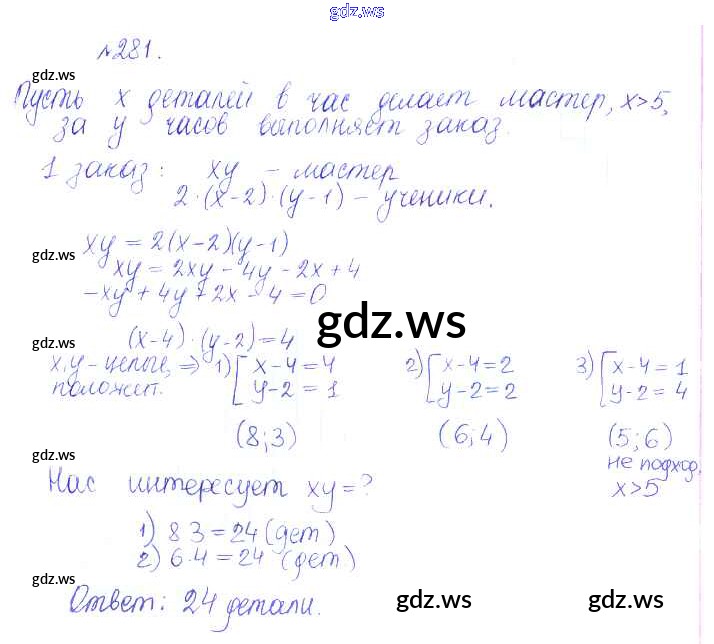 gdz.ws
№281.
gdz.ws
Пусть x деталей в час делает мастер, x>5,
за y часов выполняет заказ.
1 заказ: xy - мастер
2·(x-2)·(y-1) - ученики.
gdz.ws
xy = 2(x-2)(y-1)
xy = 2xy - 4y - 2x + 4
-xy + 4y + 2x - 4 = 0
gdz.ws
gdz.ws
(x-4)·(y-2) = 4
x,y - целые, => 1) [x-4=4 2) [x-4=2 3) [x-4=1
положит. y-2=1 y-2=2 y-2=4
(8;3) (6;4) (5;6)
gdz.ws
не подход.
Нас интересует xy=? x>5
1) 8·3=24 (дет)
2) 6·4=24 (дет)
gdz.ws
Ответ: 24 детали.
gdz.ws gdz.ws
gdz.ws